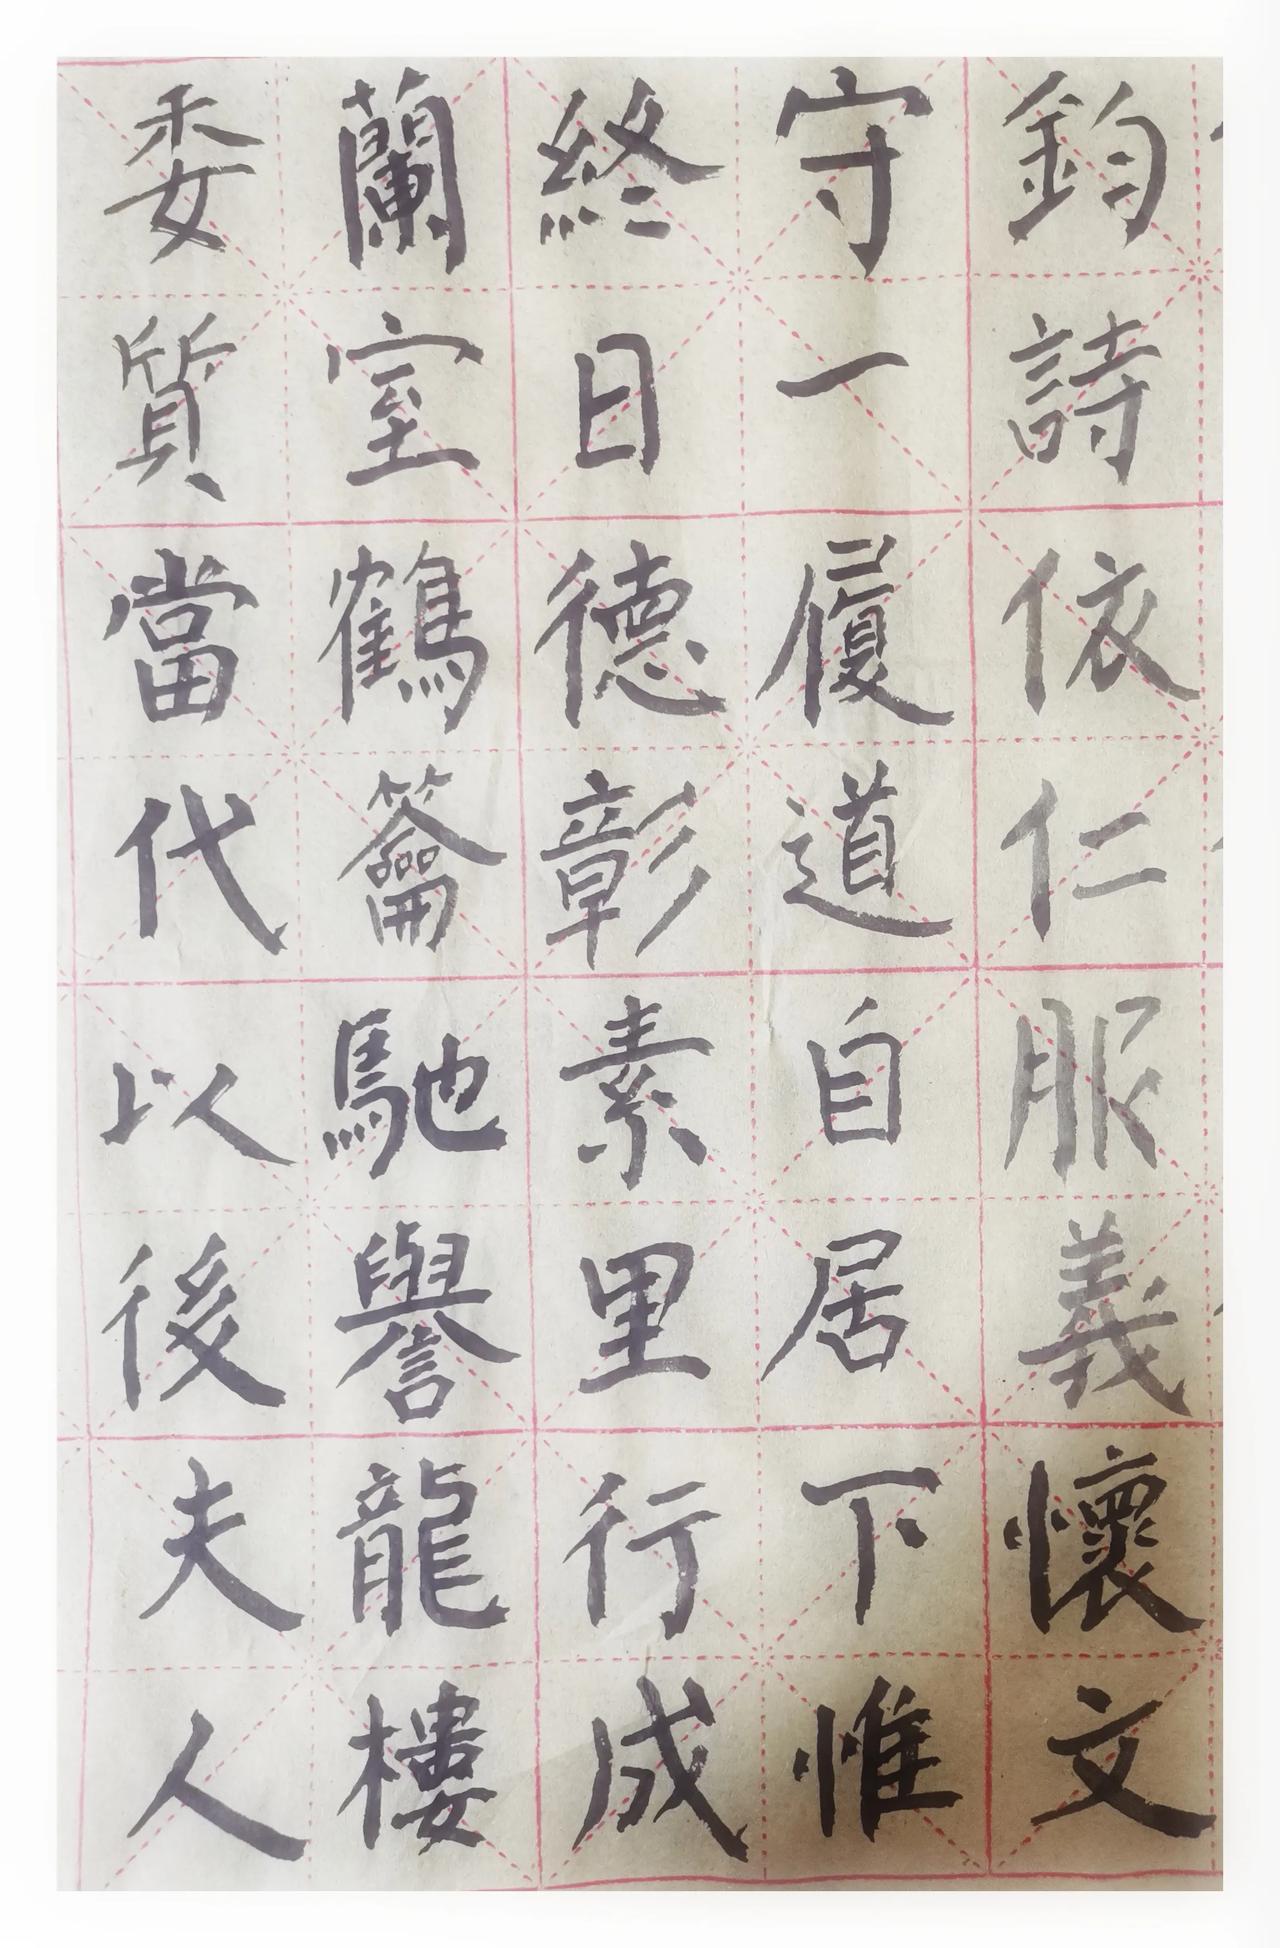 鈞詩依仁服義懷文
守一履道自居下惟
終日德彰素里行成
蘭室鶴籥馳譽龍樓
委質當代以後夫人